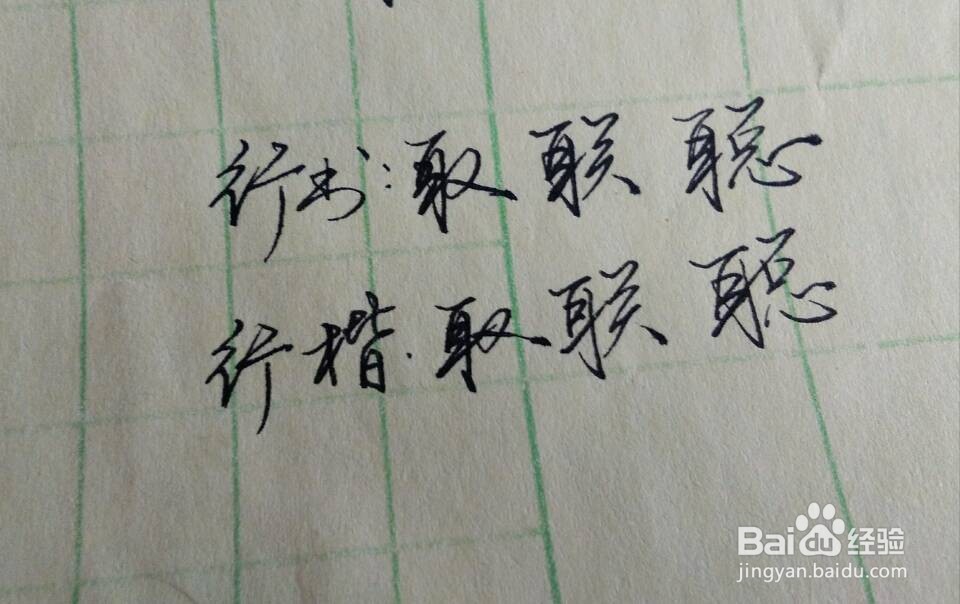 行书:取联聪
行楷.取联聪
Baidu经验
jingyan.baidu.com